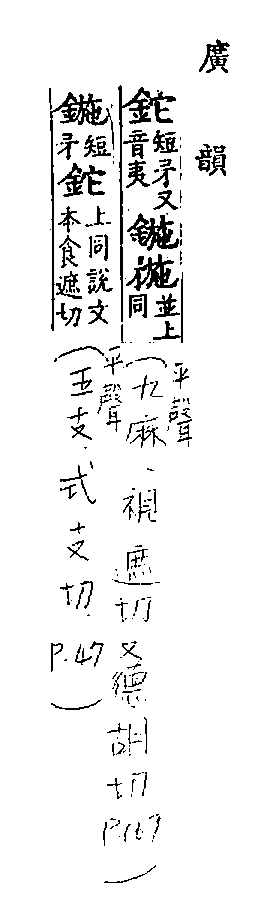 廣韻
鉈短矛又音夷鍦並上同（平聲九麻、視遮切又德胡切P.167）
鍦短矛鉈上同說文本食遮切（平聲五支、式支切P.47）